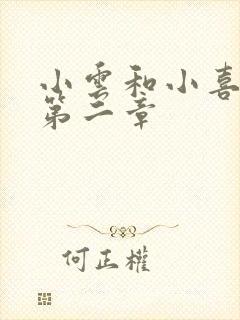 小雲和小喜
第二章
何正權